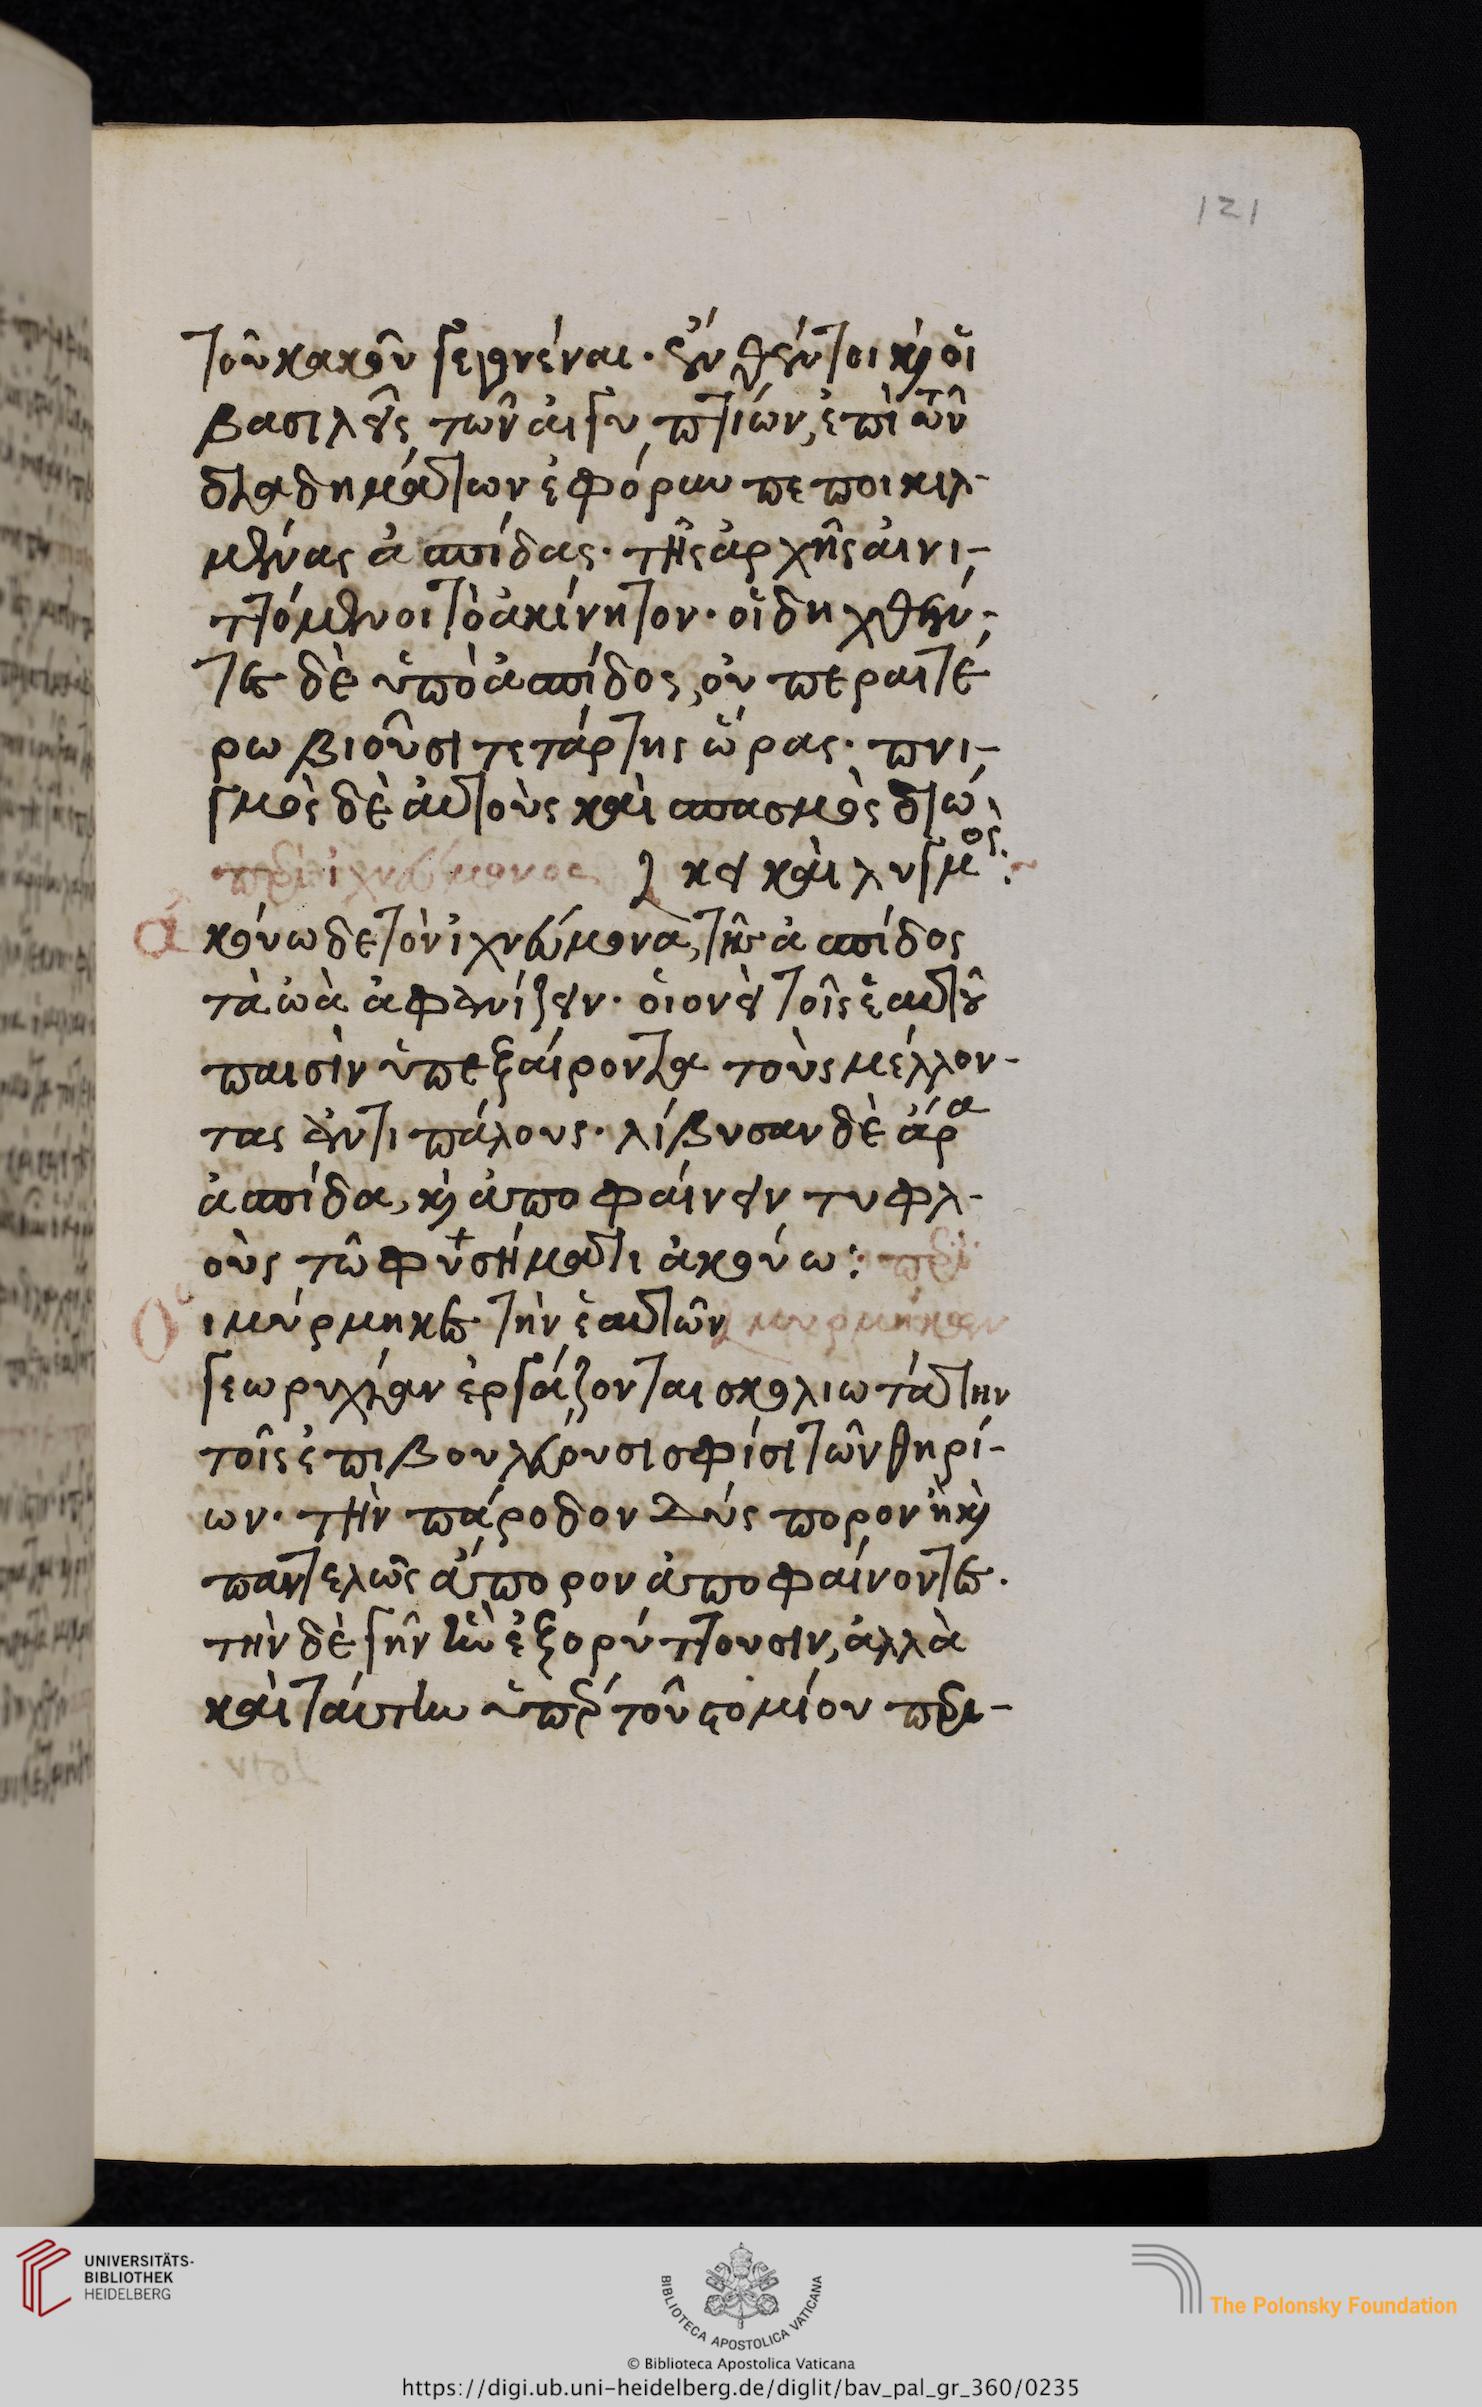 121
τοῦ κακοῦ γεγονέναι. ἔνθέν τοι κ οἱ
βασιλεῖς τῶν αἰγυπτίων, ἐπὶ τῶν
διαδημάτων ἐφόρουν πεποικιλ-
μένας ἀσπίδας. τῆς ἀρχῆς αἰνι-
τόμενοι τὸ ἀκίνητον. οἱ δηχθέν-
τες δὲ ὑπὸ ἀσπίδος, οὐ περαιτέ
ρω βιοῦσι τετάρτης ὥρας. πνι-
γμὸς δὲ αὐτοὺς καὶ σπασμὸς διώ
κει καὶ λυγμός:
περὶ ἰχνεύμονος
ἀκούω δὲ τὸν ἰχνεύμονα, τῆς ἀσπίδος
τὰ ὠὰ ἀφανίζειν. οἱονεὶ τοῖς ἑαυτοῦ
παισὶν ὑπεξαίροντα τοὺς μέλλον-
τας ἀντιπάλους. λίβυσαν δὲ ἄρα
ἀσπίδα, κ ἀποφαίνειν τυφλ-
οὺς τῶ φυσήματι ἀκούω: περὶ
οἱ μύρμηκες τὴν ἑαυτῶν μυρμήκων
γεωρυχίαν ἐργάζονται σκολιωτάτην
τοῖς ἐπιβουλεύουσι σφίσι τῶν θηρί-
ων. τὴν πάροδον δύσπορον ἢ κ
παντελῶς ἄπορον ἀποφαίνοντες.
τὴν δὲ γῆν ἣν ἐξορύττουσιν, ἀλλὰ
καὶ ταύτην ὑπὲρ τοῦ στομίου περι-
UNIVERSITÄTS-
BIBLIOTHEK
HEIDELBERG
BIBLIOTECA APOSTOLICA VATICANA
© Biblioteca Apostolica Vaticana
The Polonsky Foundation
https://digi.ub.uni-heidelberg.de/diglit/bav_pal_gr_360/0235